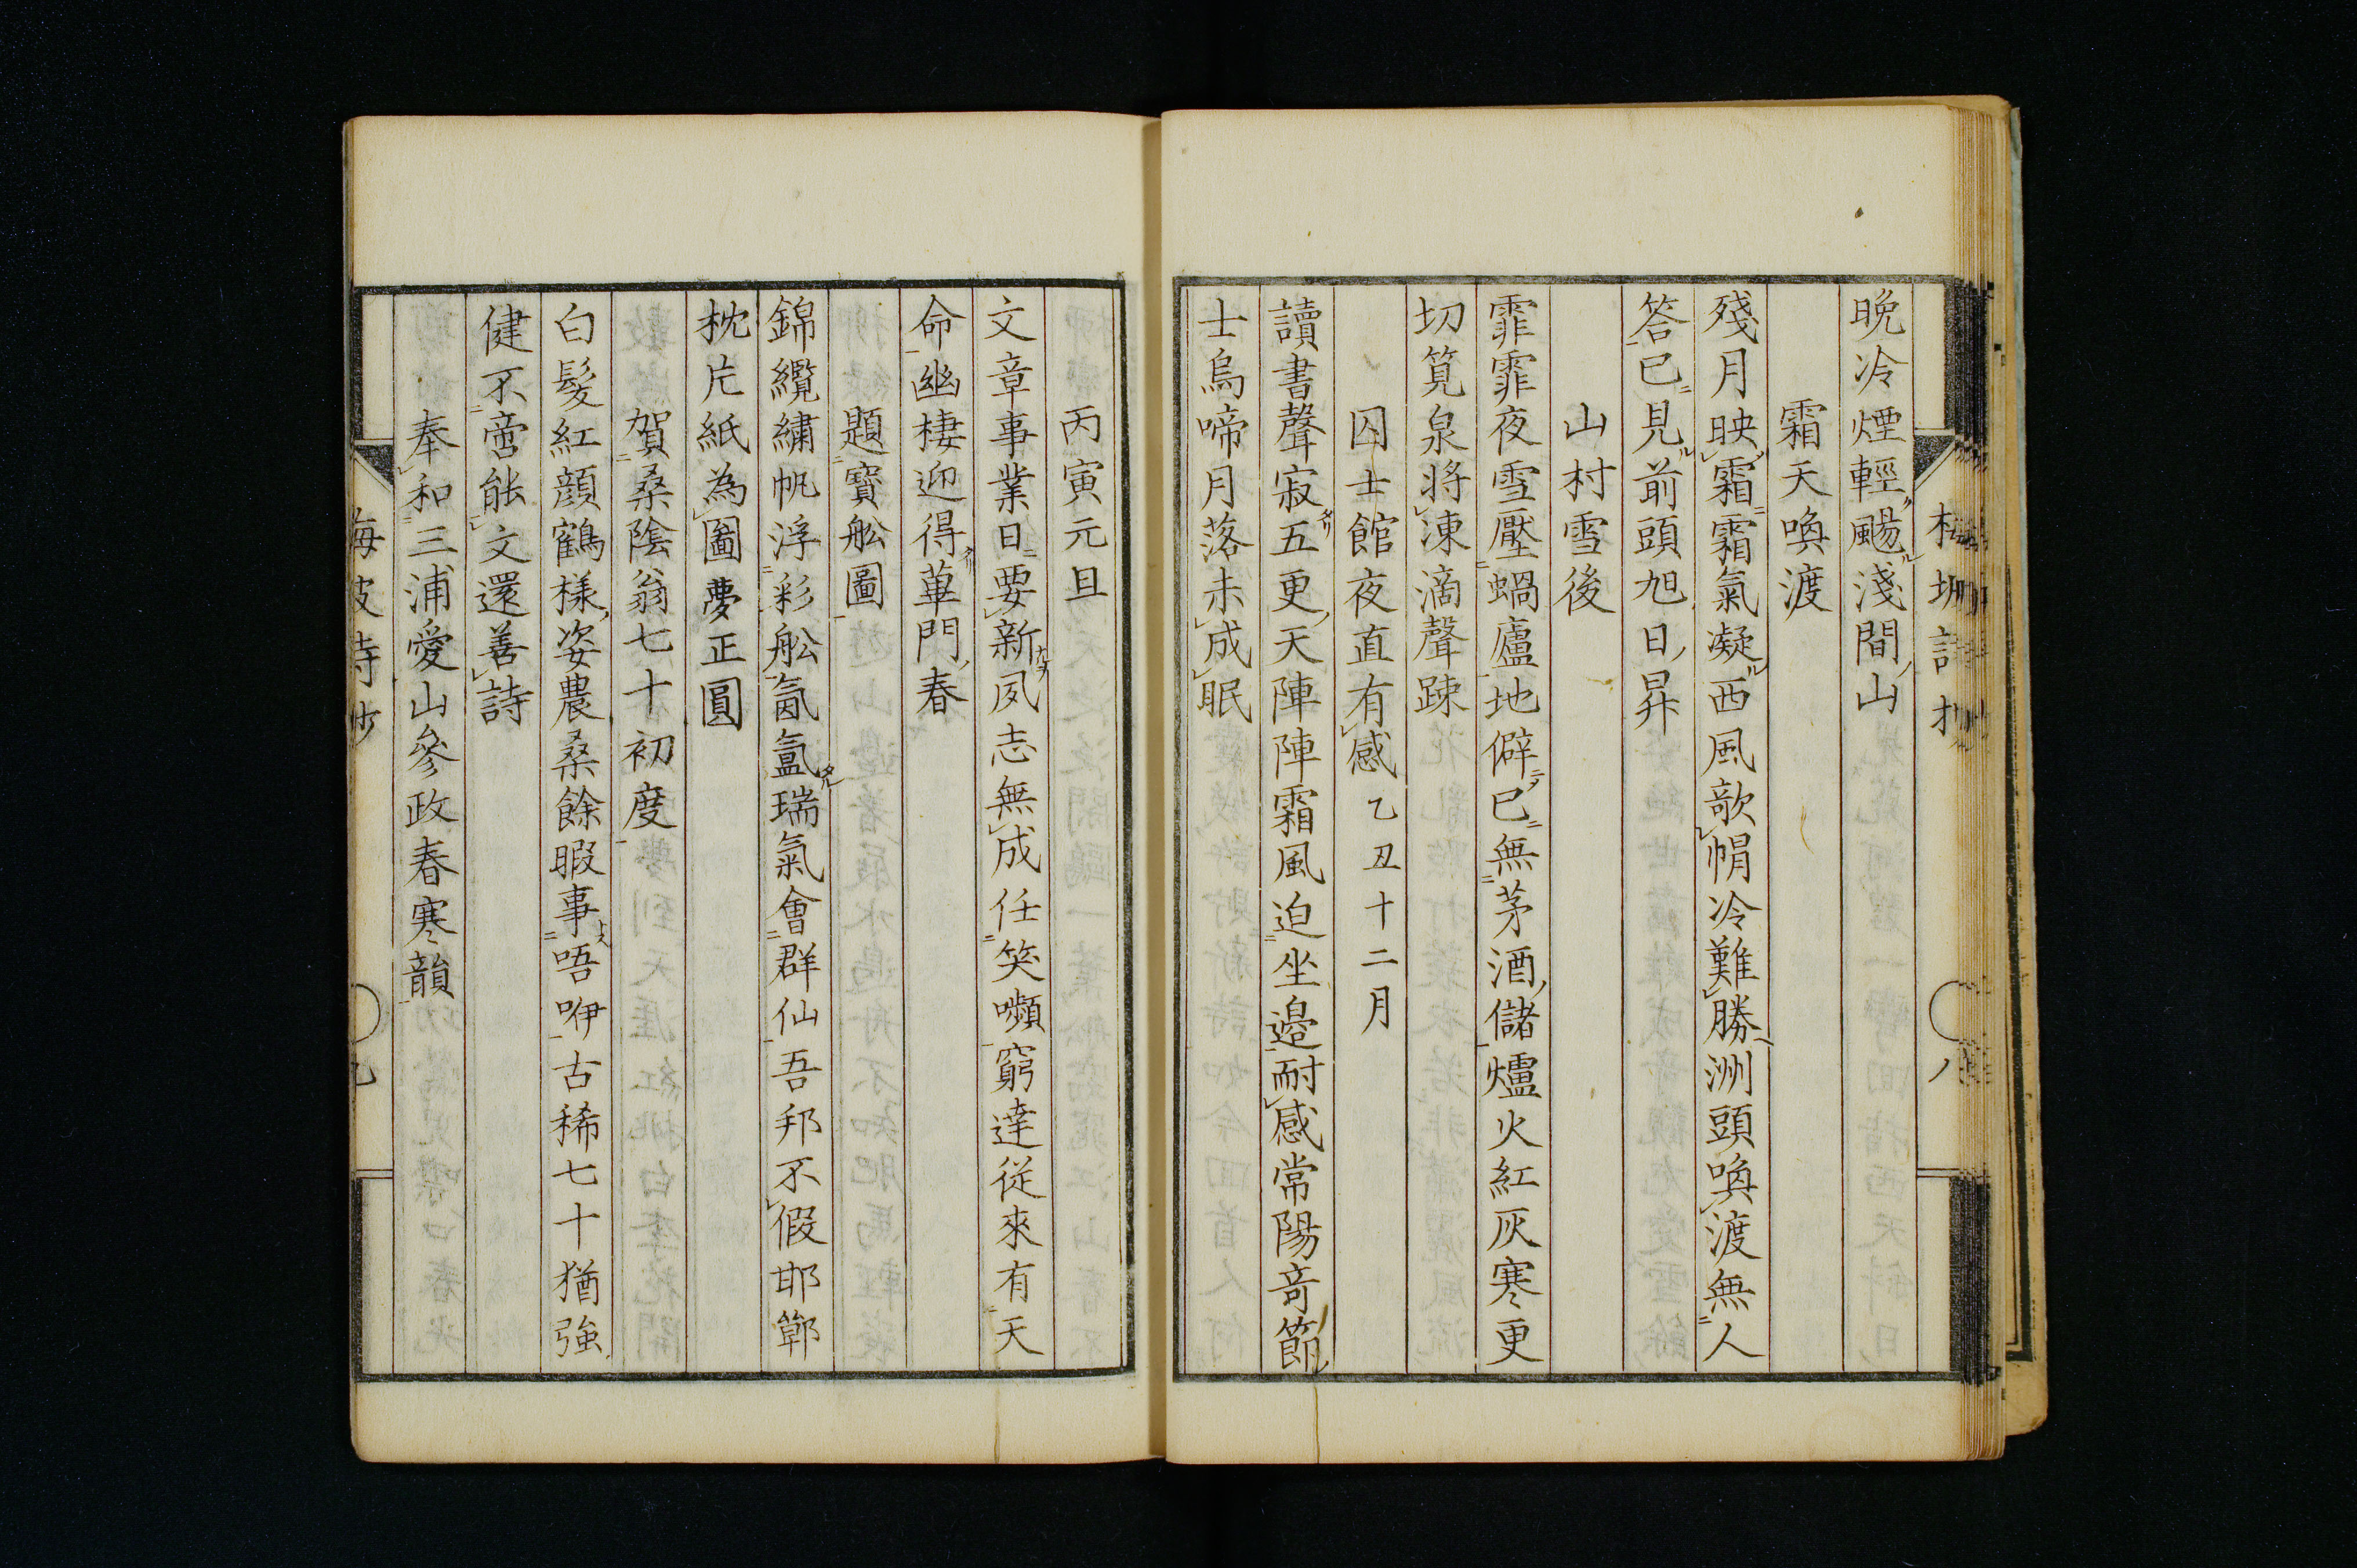 晚冷煙輕颺淺間山
霜天喚渡
殘月映霜霜氣凝西風欹帽冷難勝洲頭喚渡無人
答已見前頭旭日昇
山村雪後
霏霏夜雪壓蝸廬地僻已無茅酒儲爐火紅灰寒更
切筧泉將凍滴聲踈
囚士館夜直有感乙丑十二月
讀書聲寂五更天陣陣霜風迫坐邉耐感常陽竒節
士烏啼月落未成眠
丙寅元旦
文章事業日要新夙志無成任笑嚬窮達從來有天
命幽棲迎得蓽門春
題寶舩圖
錦纜繡帆浮彩舩氤氳瑞氣會群仙吾邦不假邯鄲
枕片紙為圖夢正圓
賀桑陰翁七十初度
白髮紅顔鶴樣姿農桑餘暇事唔咿古稀七十猶強
健不啻能文還善詩
奉和三浦愛山參政春寒韻